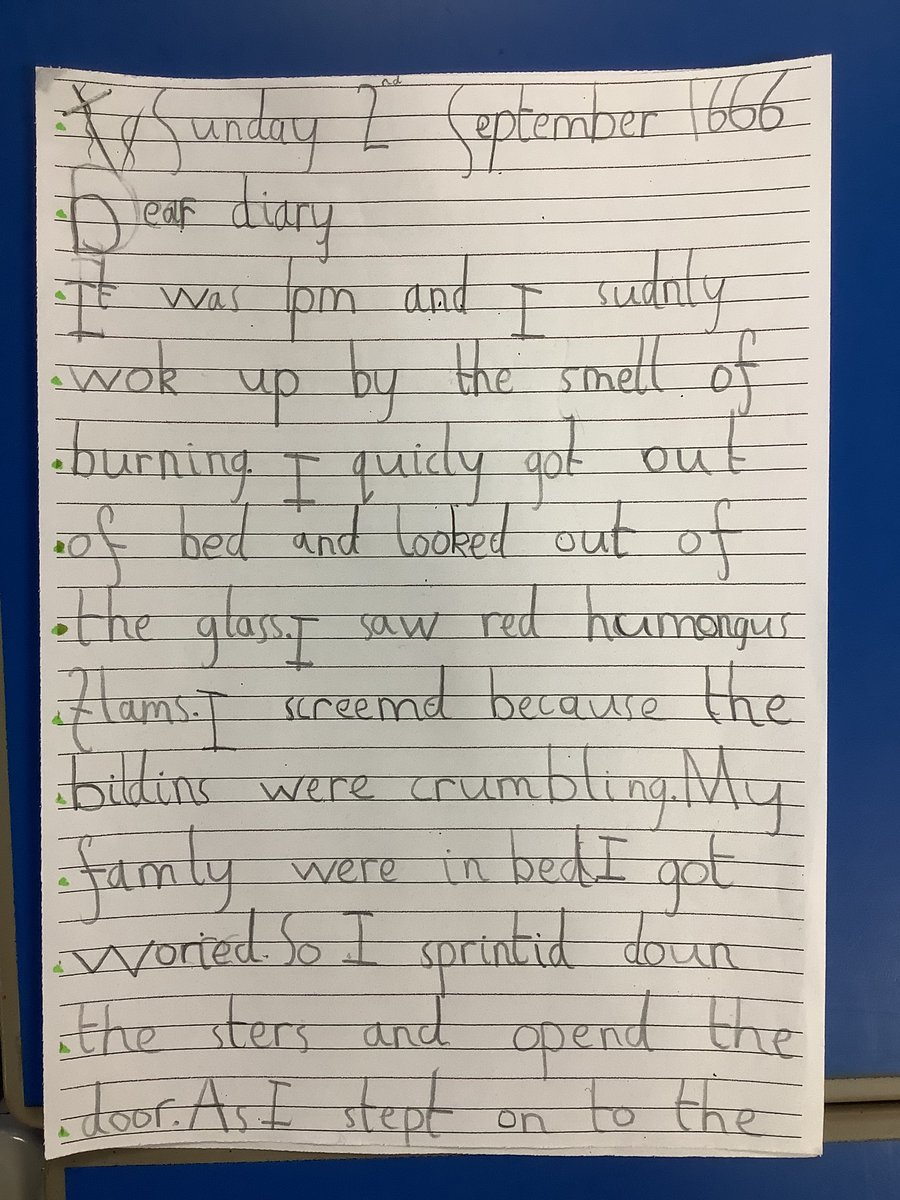 Sunday 2nd September 1666
Dear diary
It was 1pm and I sudnly
wok up by the smell of
burning. I quicly got out
of bed and looked out of
the glass. I saw red humongus
flams. I screemd because the
bildins were crumbling. My
famly were in bed I got
woried. So I sprintid doun
the sters and opend the
door. As I stept on to the